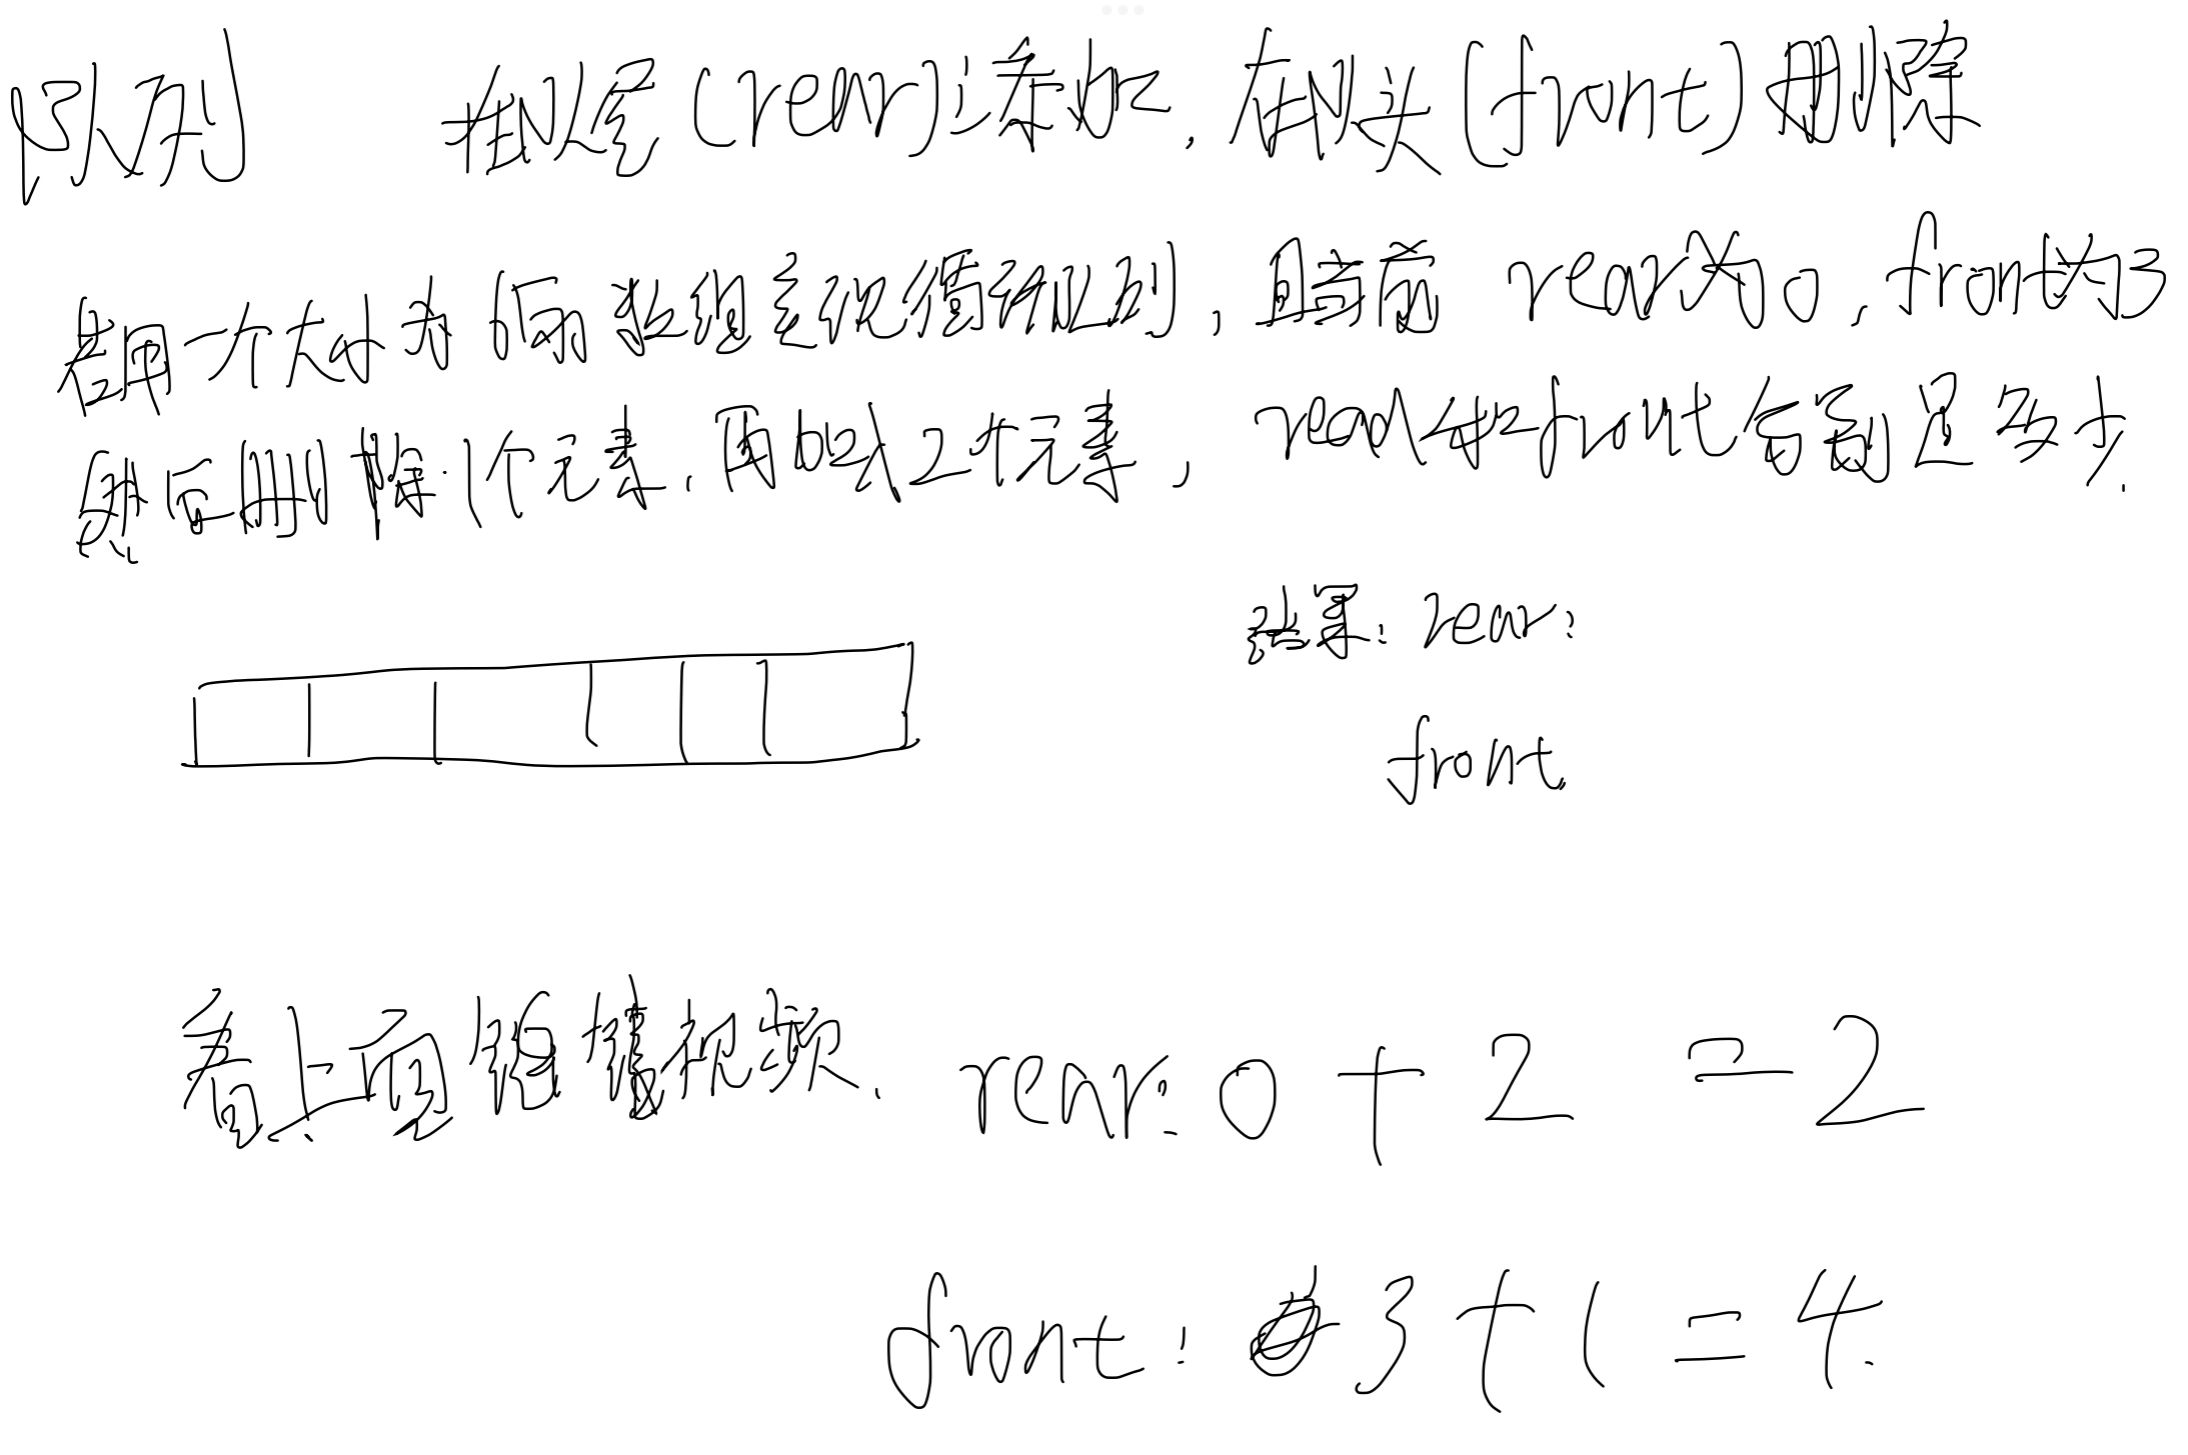 队列 在队尾(rear)添加,在队头(front)删除
若用一个大小为6的数组实现循环队列,且当前 rear为0,front为3
然后删除1个元素,再加入2个元素,rear和front分别是多少.
结果:rear:
front
看上面 视频. rear: 0 + 2 = 2
front: 3 + 1 = 4.